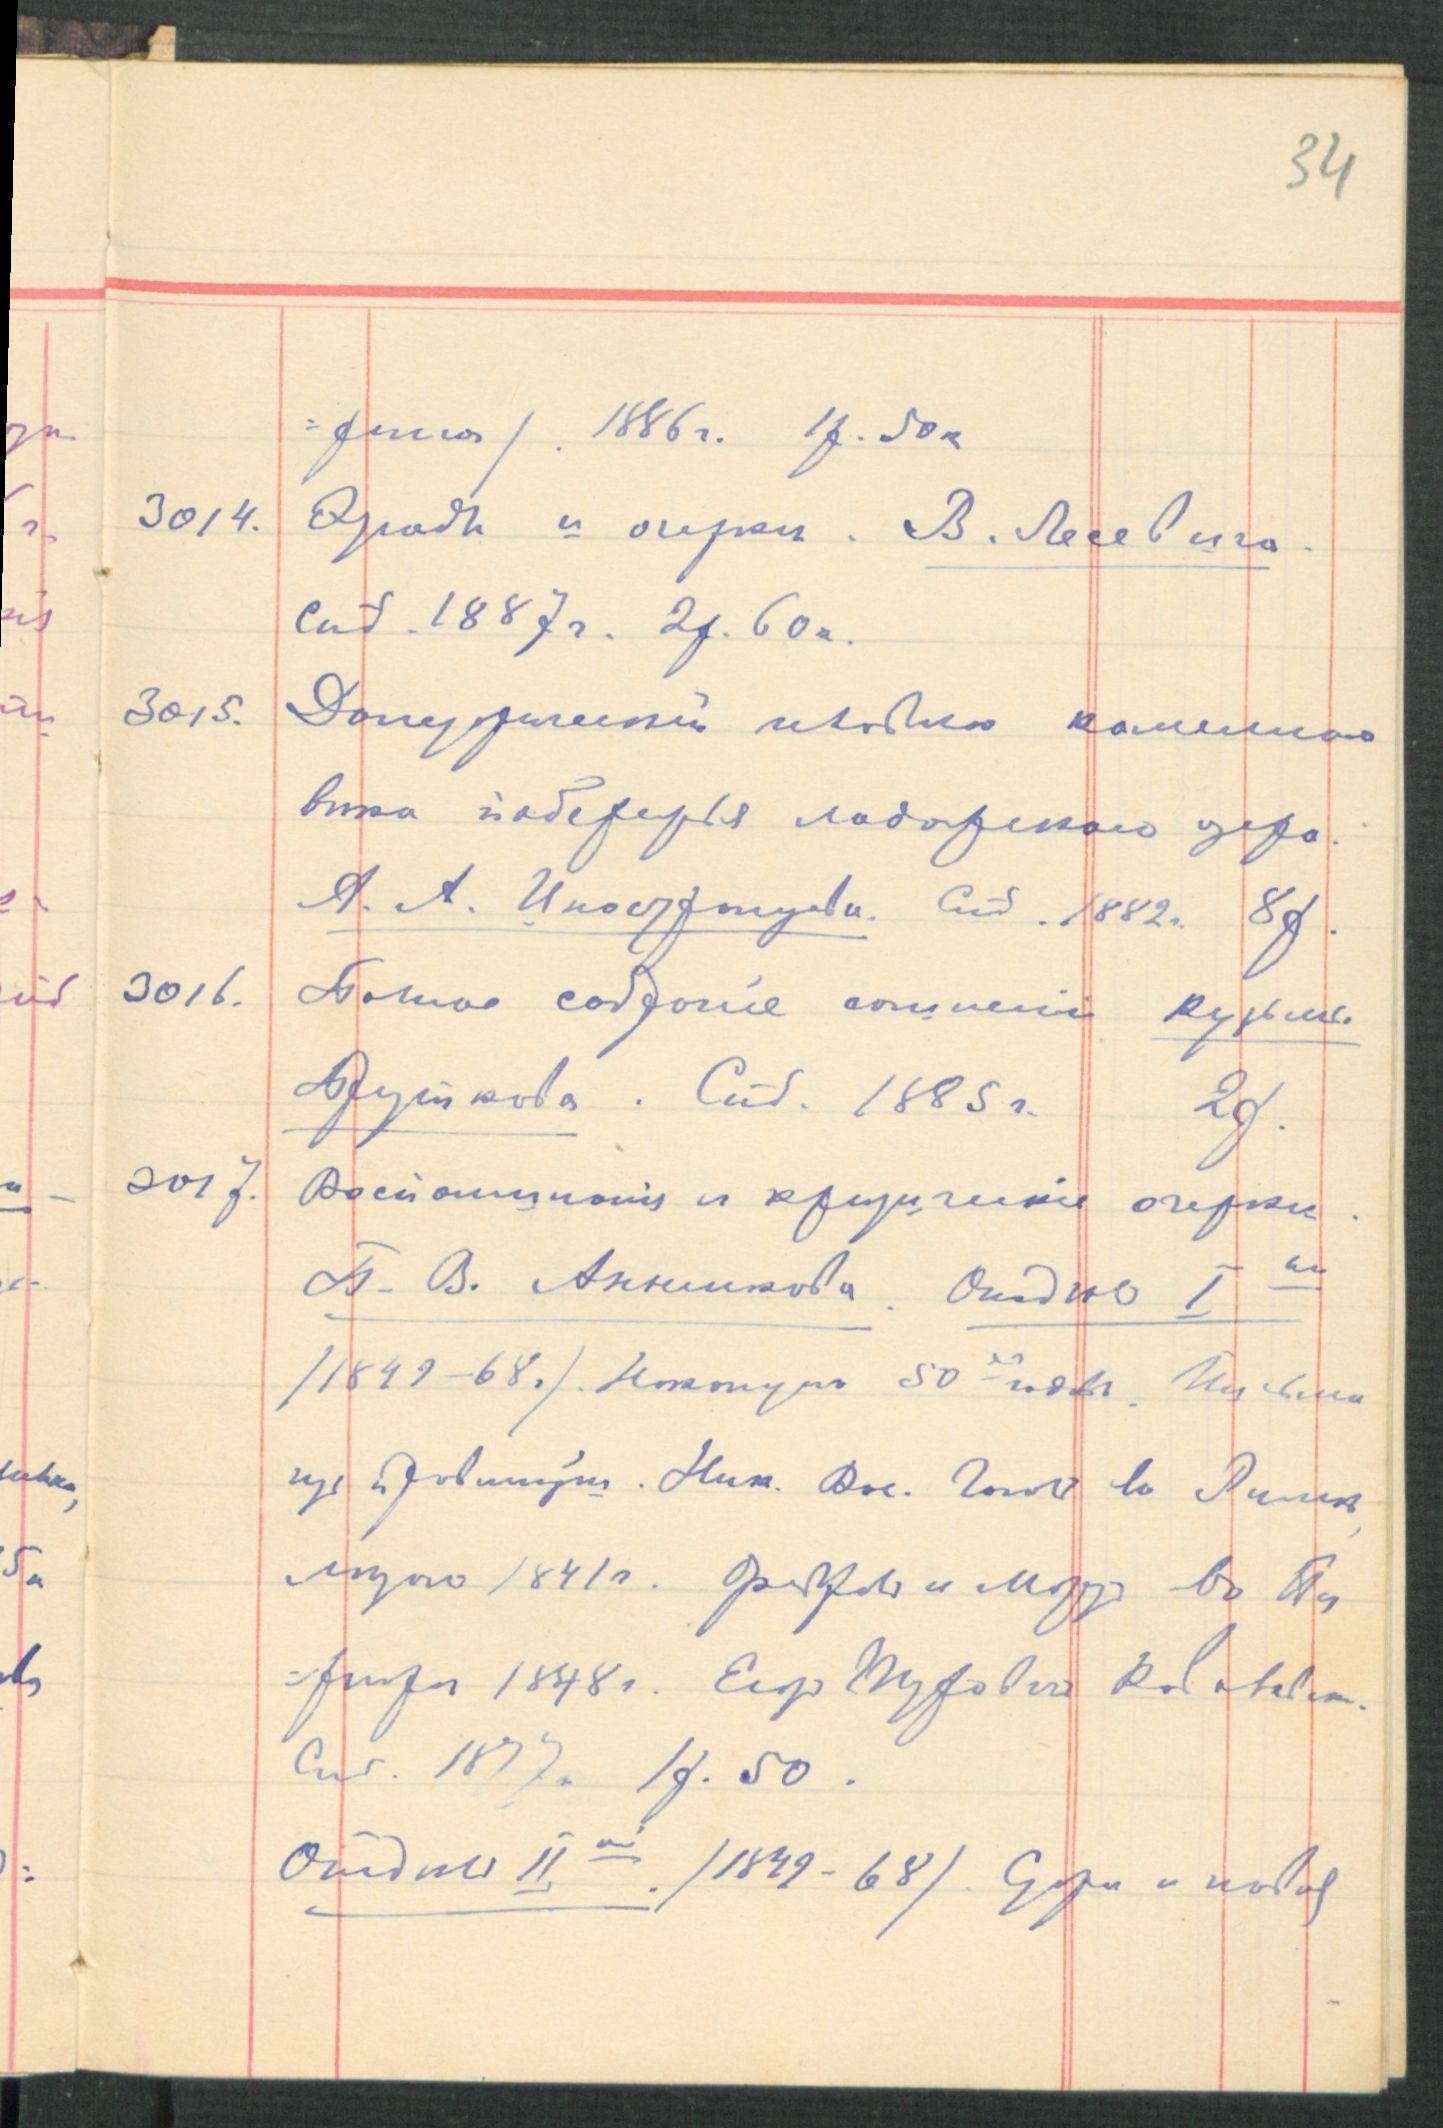 34
1886 г. 1р. 50к
3014. Этюды и очерки. В. Лесевича.
Спб. 1887 г. 2р. 60к.
3015. Доисторический человек каменнаго
века побережья ладожскаго озера.
А. А. Иностранцева. Спб. 1882г. 8р.
3016. Полное собрание сочинений Кузьмы
Пруткова. Спб. 1885 г. 2р.
3017. Воспоминания и критические очерки.
П. В. Анненкова. Отдел I ый
/1849-68./. Накануне 50 х годов. Письма
из провинции. Ник. Вас. Гоголь в Риме,
летом 1841 г. Февраль и Март в Па
=риже 1848 г. Егор Петрович Ковалевск.
Спб. 1877. 1р. 50.
Отдел II ый. /1849-68/.